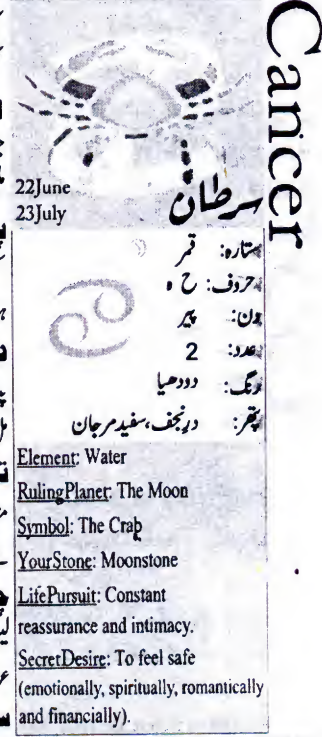 Cancer
22June
23July
سرطان
ستارہ: قمر
حروف: ح ہ
دن: پیر
عدد: 2
رنگ: دودھیا
پتھر: درنجف، سفید مرجان
Element: Water
Ruling Planet: The Moon
Symbol: The Crab
Your Stone: Moonstone
Life Pursuit: Constant
reassurance and intimacy.
Secret Desire: To feel safe
(emotionally, spiritually, romantically
and financially).